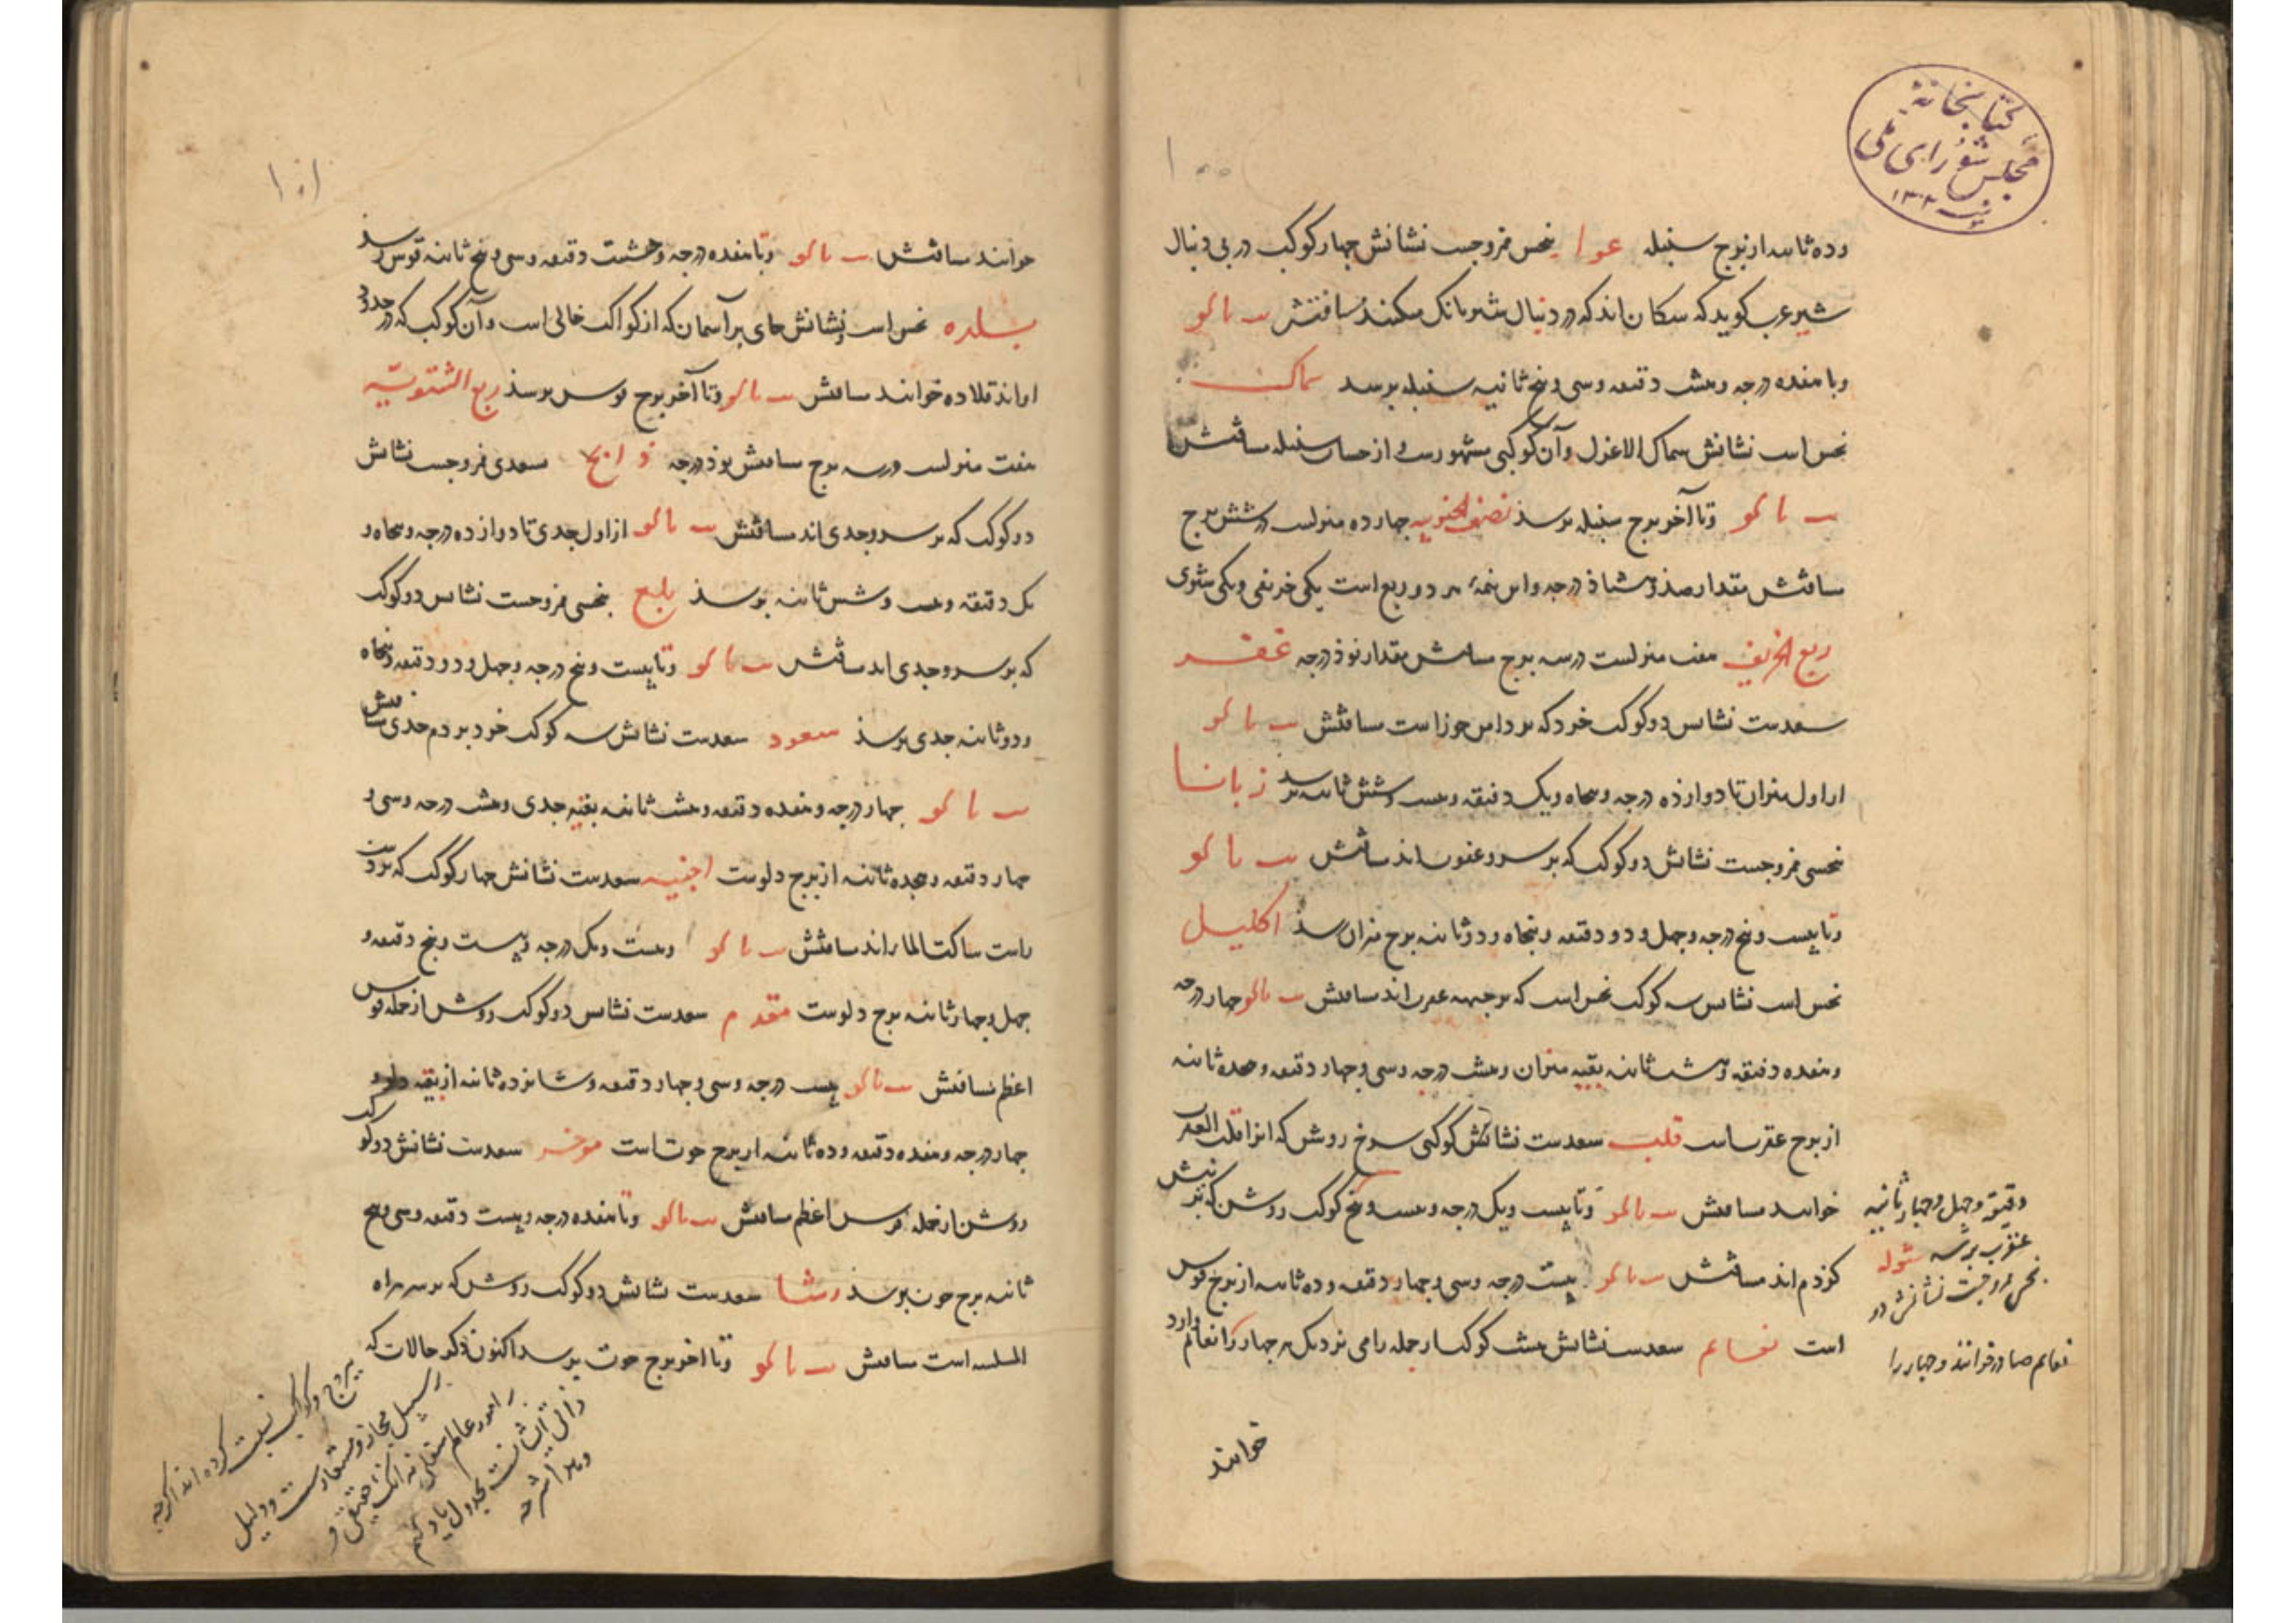 کتابخانهٔ
مجلس شورای ملی
۱۰۰
وده ثانیه از برج سنبله عوا نحس ممزوجست نشانش چهار کوکب در پی دنبال
شیر عرب کوید که سکان اند که در دنبال شیر بانک میکنند مسافتش
وتا هفده درجه وهشت دقیقه وسی وپنج ثانیه سنبله برسد سماک
نحس است نشانش سماک الاعزل وآن کوکبی مشهورست از حساب سنبله مسافتش
وتا آخر برج سنبله برسذ نصف الجنوبیه چهارده منزلست در شش برج
مسافتش مقدار صذ وهشتاذ درجه واین نیمه هر دو ربع است یکی خریفی ویکی شتوی
ربع الخریف هفت منزلست در سه برج مسافتش مقدار نوذ درجه غفر
سعدست نشانش دو کوکب خرد که بر دامن جوزاست مسافتش
از اول میزان تا دوازده درجه وپنجاه ویک دقیقه وبیست وشش ثانیه برسد زبانا
نحسی ممزوجست نشانش دو کوکب که بر سرو عقرب اند مسافتش
وتا بیست وپنج درجه وچهل ودو دقیقه وپنجاه ودو ثانیه برج میزان رسذ اکلیل
نحس است نشانش سه کوکب نحس است که بر جبهه عقرب اند مسافتش چهار درجه
وهفده دقیقه وهشت ثانیه بقیه میزان وهشت درجه وسی وچهار دقیقه وهجده ثانیه
از برج عقربست قلب سعدست نشانش کوکبی سرخ روشن که انرا قلب العقرب
خوانند مسافتش وتا بیست ویک درجه وبیست وپنج کوکب روشن که بر نیش
کژدم اند مسافتش بیست درجه وسی وچهار دقیقه وده ثانیه از برج قوس
است نعایم سعدست نشانش هشت کوکب از جمله رامی نزدیک هر چهار را نعایم وارد
دقیقه وچهل وچهار ثانیه
عقرب برسد شوله
نحس ممزوجست نشانش دو
نعایم صادر خوانند وچهار را
خوانند
۱۰۱
خوانند مسافتش وتا هفده درجه وهشت دقیقه وسی وپنج ثانیه قوس رسذ
بلده نحس است ونشانش جای بر آسمان که از کواکب خالی است وآن کوکب که در حدود
او اند قلاده خوانند مسافتش وتا آخر برج قوس برسذ ربع الشتویّه
هفت منزلست در سه برج مسافتش نوذ درجه ذابح سعدی ممزوجست نشانش
دو کوکب که بر سرو جدی اند مسافتش از اول جدی تا دوازده درجه وپنجاه و
یک دقیقه وبیست وشش ثانیه برسذ بلع نحسی ممزوجست نشانش دو کوکب
که بر سرو جدی اند مسافتش وتا بیست وپنج درجه وچهل ودو دقیقه وپنجاه
ودو ثانیه جدی برسذ سعود سعدست نشانش سه کوکب خرد بر دم جدی مسافتش
چهار درجه وهفده دقیقه وهشت ثانیه بقیه جدی وهشت درجه وسی و
چهار دقیقه وهجده ثانیه از برج دلوست اخبیه سعدست نشانش چهار کوکب که بر دست
راست ساکب الما اند مسافتش وبیست ویک درجه وبیست وپنج دقیقه و
چهل وچهار ثانیه برج دلوست مقدم سعدست نشانش دو کوکب روشن از جمله فرس
اعظم مسافتش بیست درجه وسی وچهار دقیقه وشانزده ثانیه از بقیه دلو و
چهار درجه وهفده دقیقه وده ثانیه از برج حوتست موخر سعدست نشانش دو کوکب
روشن از جمله فرس اعظم مسافتش وتا هفده درجه وبیست دقیقه وسی وپنج
ثانیه برج حوت برسذ رشا سعدست نشانش دو کوکب روشن که بر سر مراه
المسلسله است مسافتش وتا اخر برج حوت برسد اکنون ذکر حالات که
ببروج وکواکب نسبت کرده اند اگرچه
بر سبیل مجاز ومستعارست ودلیل
بر امور عالم سفلی نه انک حقیقی و
ذاتی ایشانست بجدول یاد کنیم